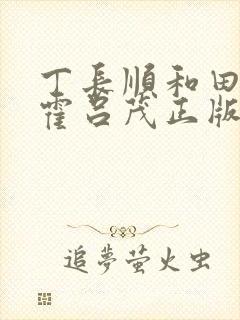 丁長順和田
霍呂茂正版
追夢萤火虫